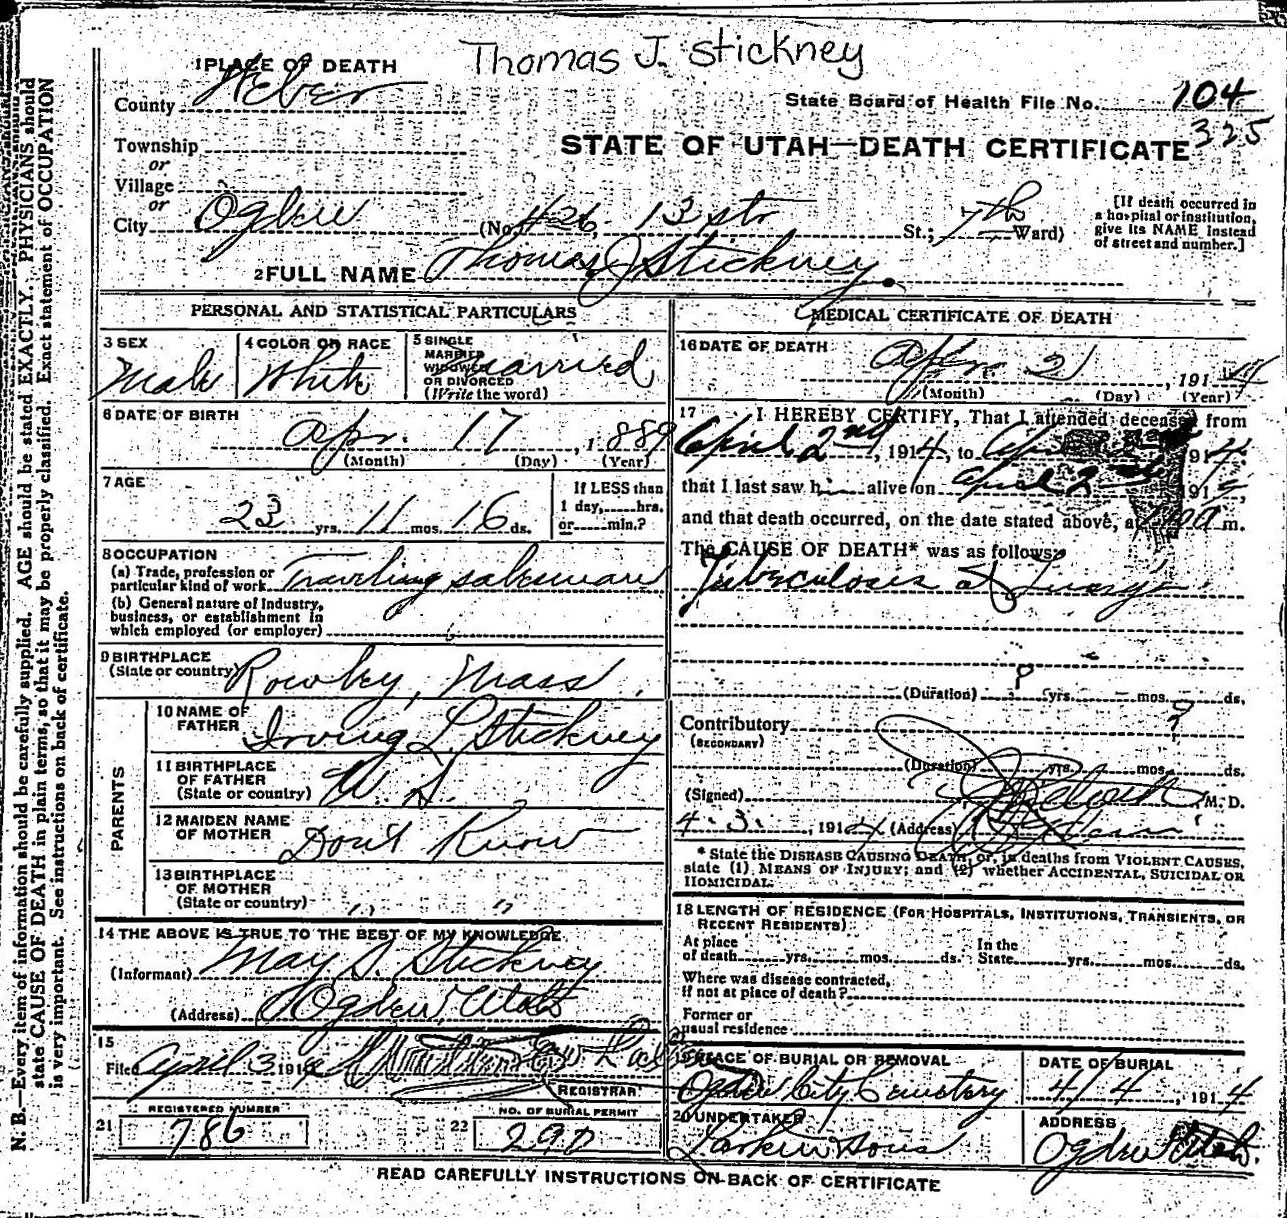 Thomas J. Stickney
1 PLACE OF DEATH
County Weber
State Board of Health File No. 104
325
Township
or
Village
or
STATE OF UTAH—DEATH CERTIFICATE
City Ogden (No. 426, 13 str St.; 7th Ward)
[If death occurred in
a hospital or institution,
give its NAME instead
of street and number.]
2 FULL NAME Thomas J Stickney.
PERSONAL AND STATISTICAL PARTICULARS
3 SEX
Male
4 COLOR OR RACE
White
5 SINGLE
MARRIED
WIDOWED
OR DIVORCED
(Write the word)
Married
6 DATE OF BIRTH
Apr. 17, 1889
(Month) (Day) (Year)
7 AGE
23 yrs. 11 mos. 16 ds.
If LESS than
1 day, hrs.
or min.?
8 OCCUPATION
(a) Trade, profession or
particular kind of work Traveling salesman
(b) General nature of Industry,
business, or establishment in
which employed (or employer)
9 BIRTHPLACE
(State or country) Rowley, Mass.
PARENTS
10 NAME OF
FATHER Irving L. Stickney
11 BIRTHPLACE
OF FATHER
(State or country) U. S.
12 MAIDEN NAME
OF MOTHER Dont Know
13 BIRTHPLACE
OF MOTHER
(State or country) " "
14 THE ABOVE IS TRUE TO THE BEST OF MY KNOWLEDGE
(Informant) May S. Stickney
(Address) Ogden, Utah
15
Filed April 3 1914
REGISTRAR
21 REGISTERED NUMBER
786
22 NO. OF BURIAL PERMIT
290
MEDICAL CERTIFICATE OF DEATH
16 DATE OF DEATH
Apr. 2, 1914
(Month) (Day) (Year)
17 I HEREBY CERTIFY, That I attended deceased from
April 2nd, 1914, to April 1914,
that I last saw h alive on April 2nd 191
and that death occurred, on the date stated above, at m.
The CAUSE OF DEATH* was as follows:
Tuberculosis of Lungs
(Duration) ? yrs. mos. ds.
Contributory ?
(SECONDARY)
(Duration) yrs. mos. ds.
(Signed) M. D.
4.3., 1914 (Address)
* State the DISEASE CAUSING DEATH, or, in deaths from VIOLENT CAUSES,
state (1) MEANS OF INJURY; and (2) whether ACCIDENTAL, SUICIDAL OR
HOMICIDAL.
18 LENGTH OF RESIDENCE (FOR HOSPITALS, INSTITUTIONS, TRANSIENTS, OR
RECENT RESIDENTS)
At place
of death yrs. mos. ds.
In the
State yrs. mos. ds.
Where was disease contracted,
if not at place of death?
Former or
usual residence
19 PLACE OF BURIAL OR REMOVAL
Ogden City Cemetery
DATE OF BURIAL
4/4, 1914
20 UNDERTAKER
Larkin & Sons
ADDRESS
Ogden Utah.
READ CAREFULLY INSTRUCTIONS ON BACK OF CERTIFICATE
N. B.—Every item of information should be carefully supplied. AGE should be stated EXACTLY. PHYSICIANS should
state CAUSE OF DEATH in plain terms, so that it may be properly classified. Exact statement of OCCUPATION
is very important. See instructions on back of certificate.